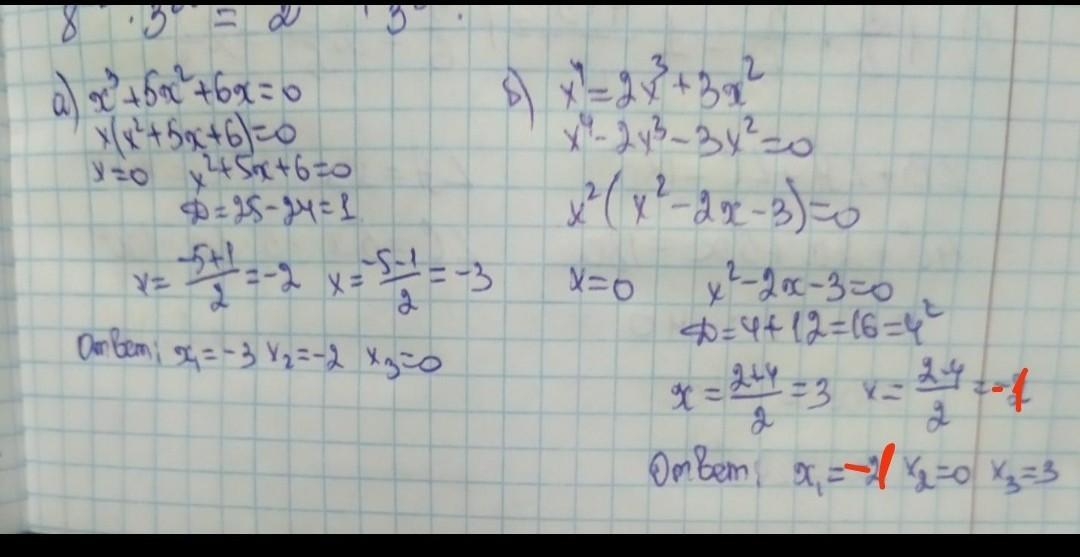 8 · 3 = 2 3 .
а) x³+5x²+6x=0
x(x²+5x+6)=0
x=0 x²+5x+6=0
D=25-24=1
x= -5+1/2 =-2 x= -5-1/2 = -3
Ответ: x₁=-3 x₂=-2 x₃=0
б) x⁴=2x³+3x²
x⁴-2x³-3x²=0
x²(x²-2x-3)=0
x=0 x²-2x-3=0
D=4+12=16=4²
x = 2+4/2 =3 x= 2-4/2 =-1
Ответ: x₁=-1 x₂=0 x₃=3